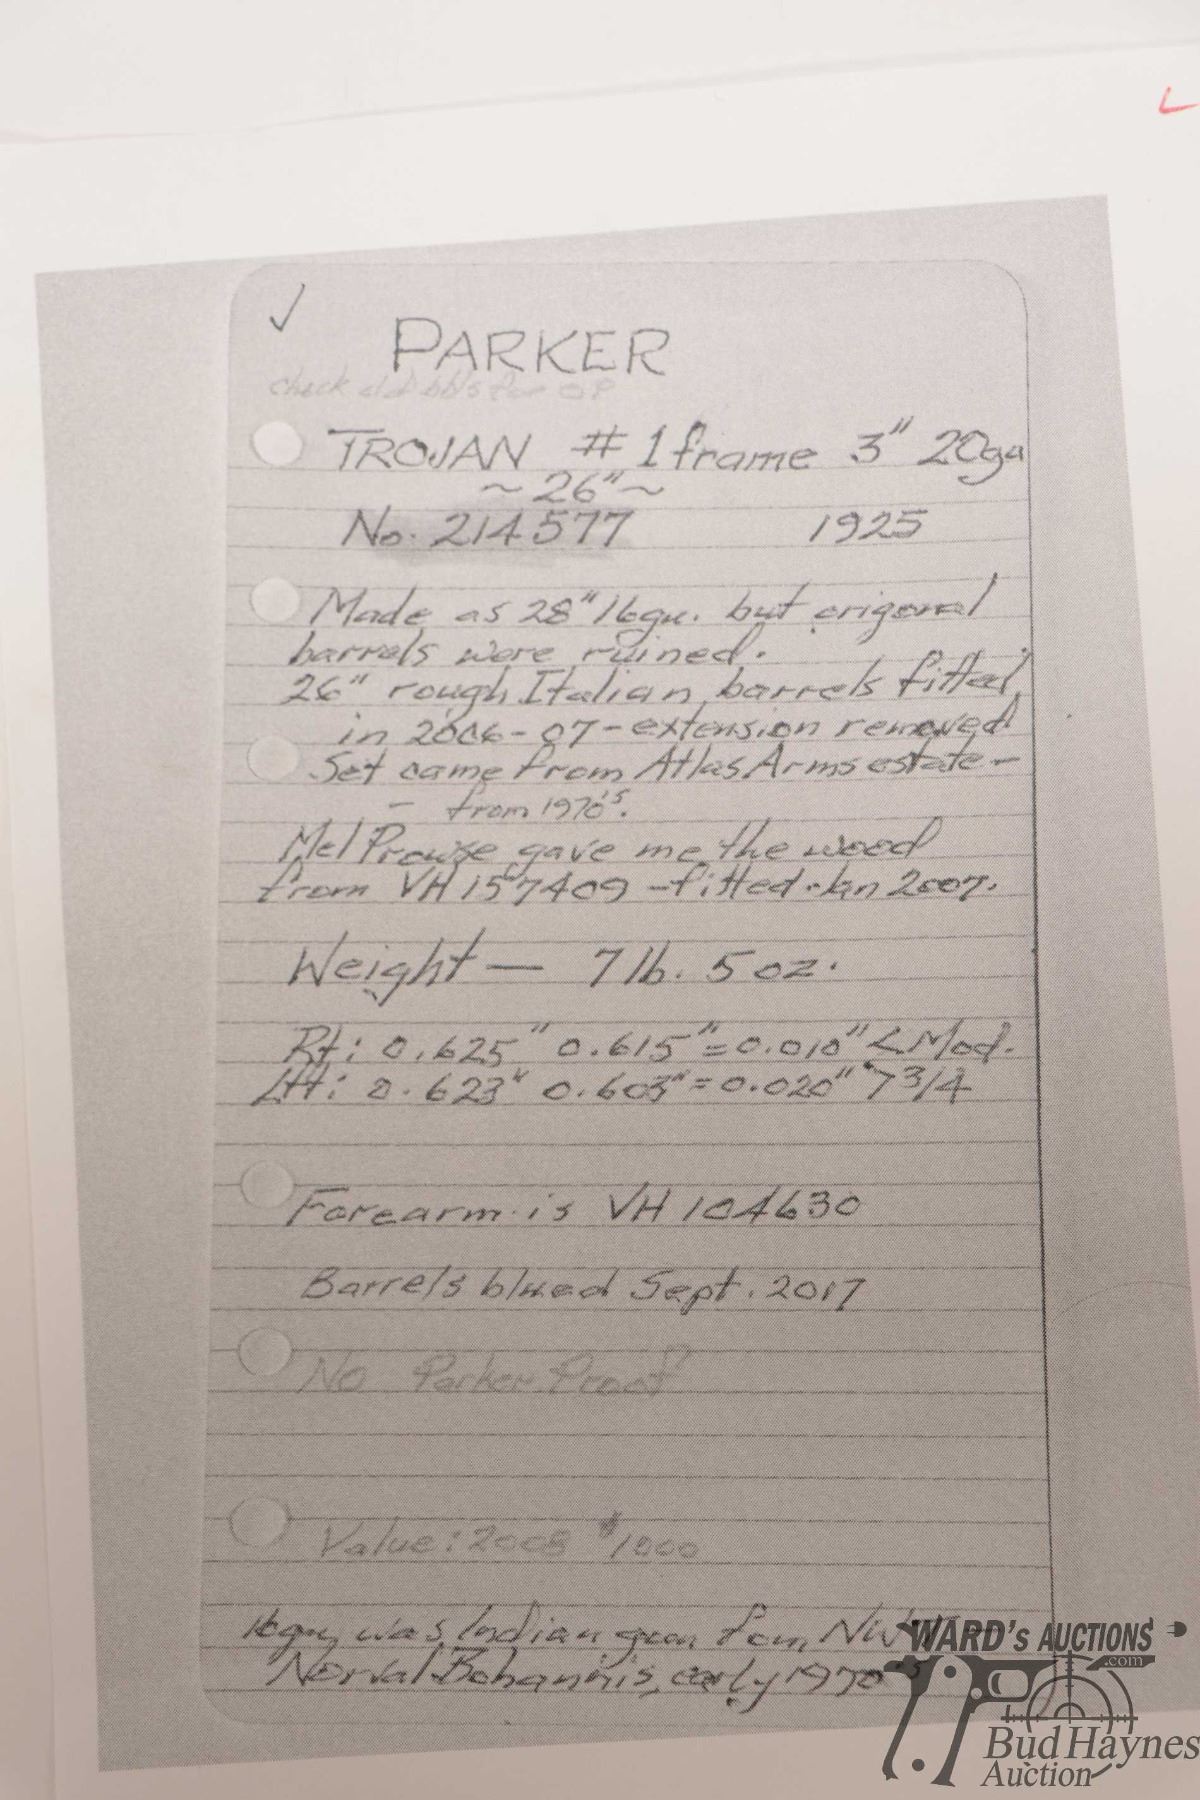 PARKER
check old bbls for OP
TROJAN # 1 frame 3" 20ga
~ 26" ~
No. 214577 1925
Made as 28" 16gu. but origonal
barrels were ruined.
26" rough Italian barrels fitted
in 2006-07 - extension removed
Set came from Atlas Arms estate -
- from 1970's.
Mel Prowse gave me the wood
from VH 157409 - fitted Jan 2007.
Weight — 7 lb. 5 oz.
Rt: 0.625" 0.615" = 0.010" < Mod.
Lft: 0.623" 0.603" = 0.020" 7 3/4
Forearm is VH 104630
Barrels blued Sept. 2017
No Parker Proof
Value: 2008 $1000
16gu was Indian gun from
Norval Bohannis, early 1970's
WARD's AUCTIONS
.com
Bud Haynes
Auction